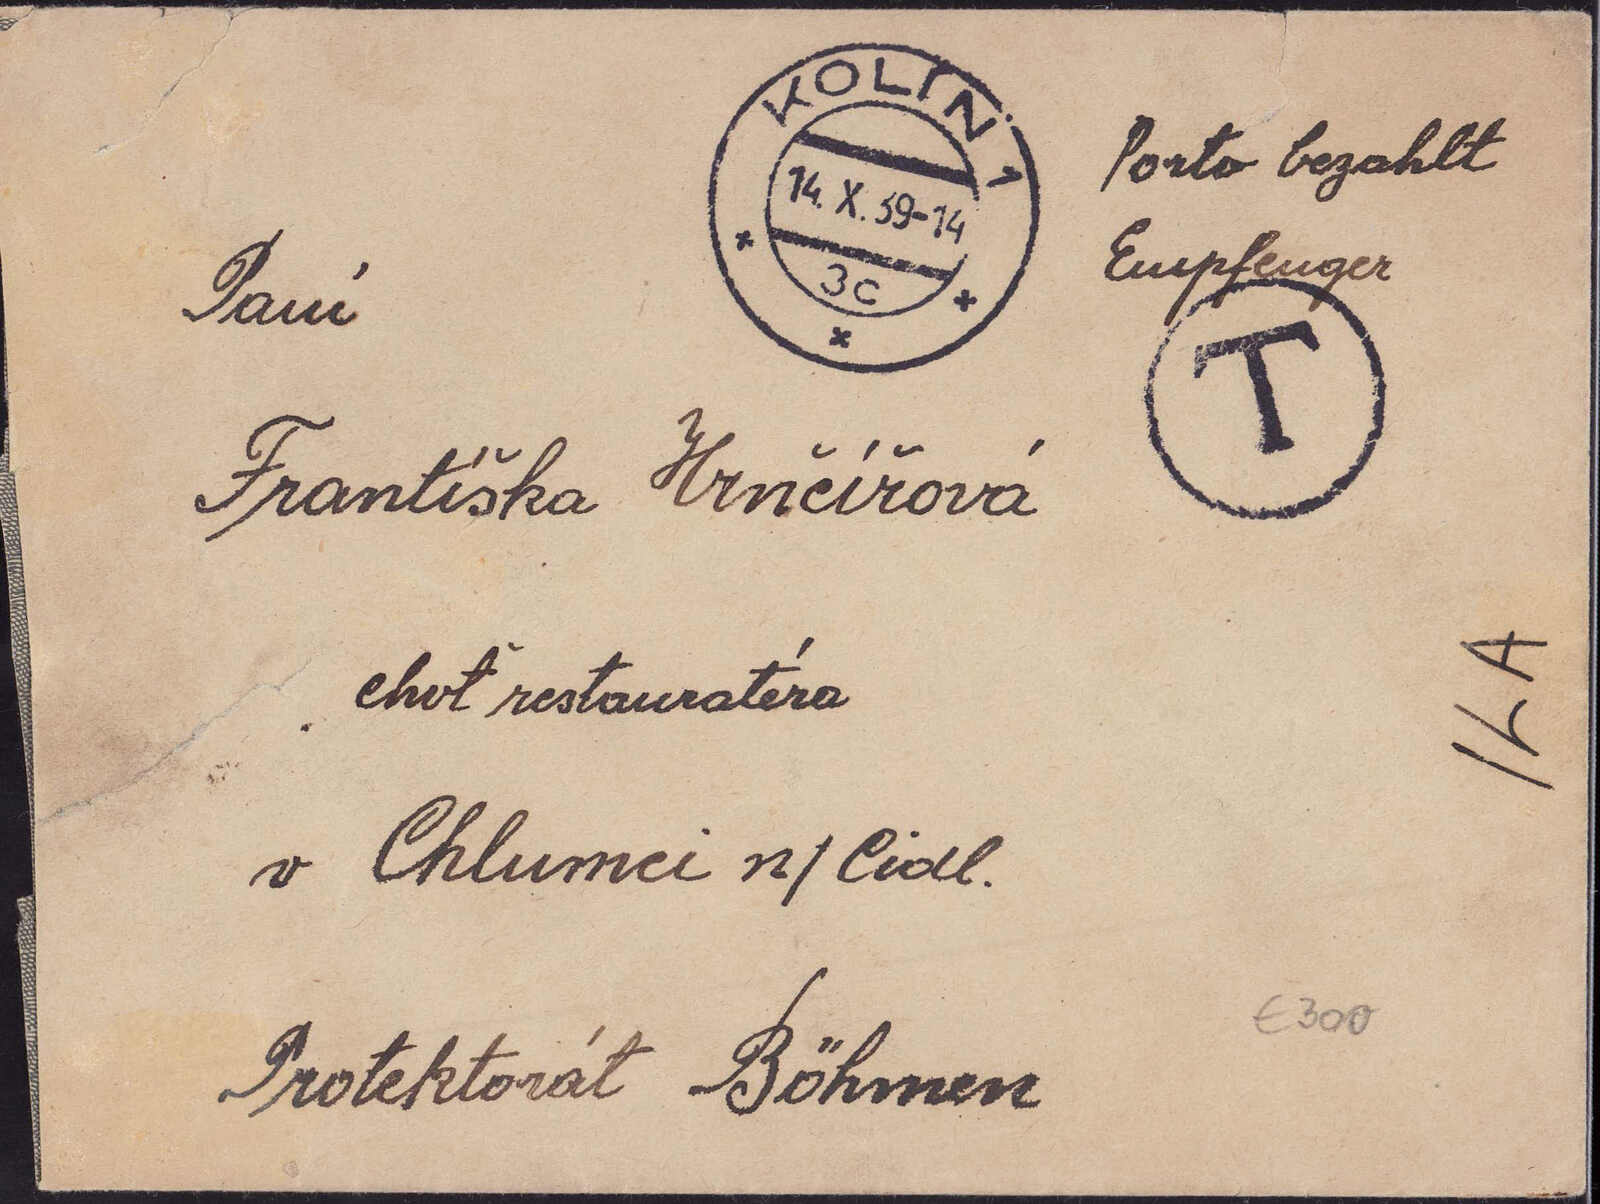 KOLÍN 1
14. X. 39-14
3c
Porto bezahlt
Empfenger
T
Paní
Františka Hrnčířová
choť restauratéra
v Chlumci n/Cidl.
Protektorát Böhmen
€300